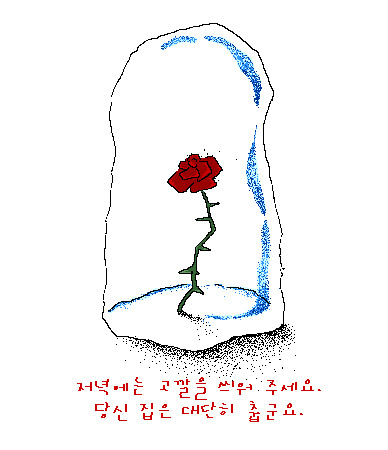 저녁에는 고깔을 씌워 주세요.
당신 집은 대단히 춥군요.